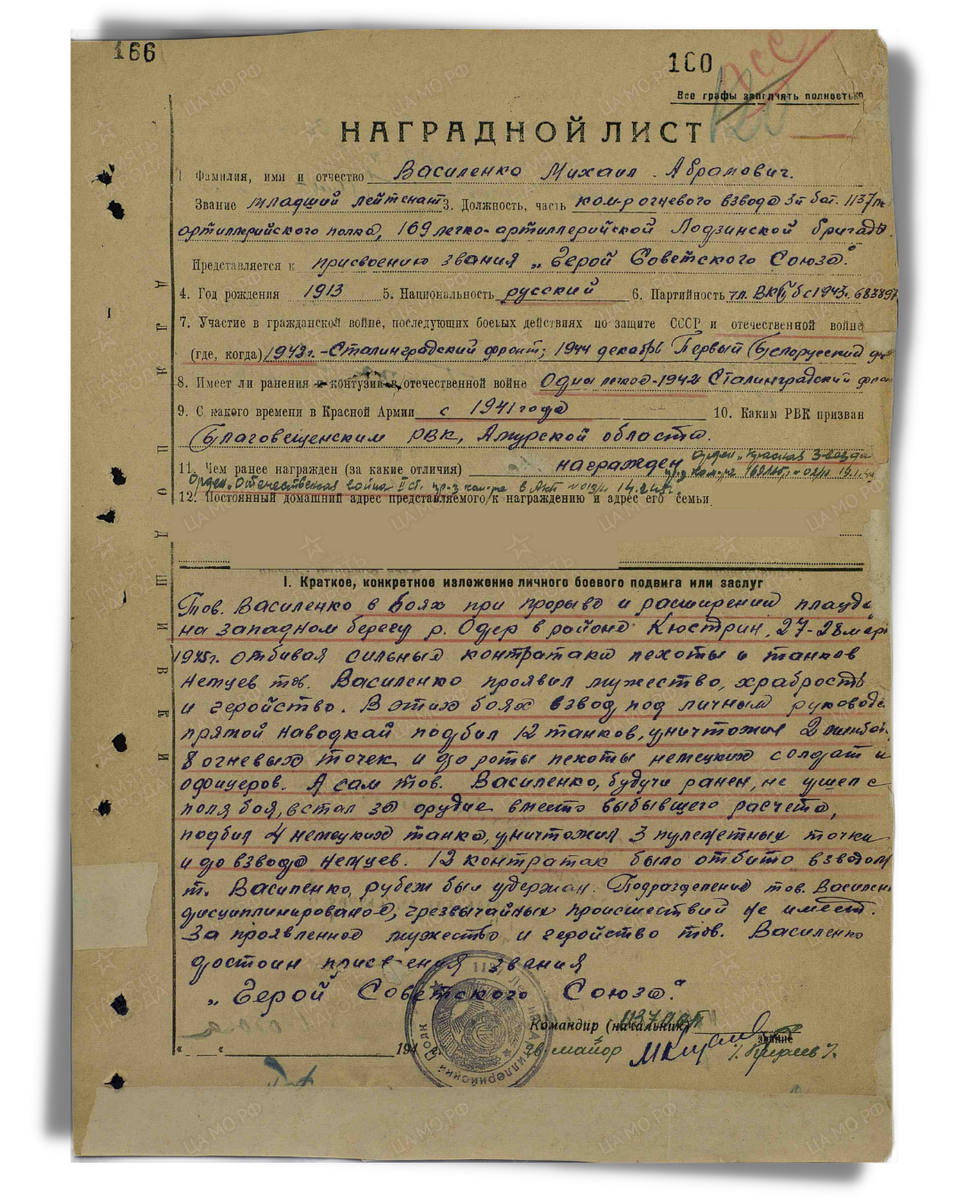 166
100
Все графы заполнять полностью
НАГРАДНОЙ ЛИСТ
1 Фамилия, имя и отчество Василенко Михаил Абрамович.
Звание младший лейтенант 3. Должность, часть ком. огневого взвода 3й бат. 1137
артиллерийского полка, 169 легко-артиллерийской Лодзинской бригады.
Представляется к присвоению звания „Герой Советского Союза".
4. Год рождения 1913 5. Национальность русский 6. Партийность чл. ВКП(б) с 1943г.
7. Участие в гражданской войне, последующих боевых действиях по защите СССР и отечественной войне
(где, когда) 1942г. - Сталинградский фронт; 1944 декабрь Первый Белорусский
8. Имеет ли ранения и контузии в отечественной войне Одно легкое-1942 Сталинградский
9. С какого времени в Красной Армии с 1941 года 10. Каким РВК призван
Благовещенским РВК, Амурской области.
11. Чем ранее награжден (за какие отличия) награжден Орден „Красная Звезда
Орден „Отечественная война II ст.
12. Постоянный домашний адрес представляемого к награждению и адрес его семьи
ДЛЯ ПОДШИВКИ
I. Краткое, конкретное изложение личного боевого подвига или заслуг
Тов. Василенко в боях при прорыве и расширении плацд
на западном берегу р. Одер в районе Кюстрин, 27-28 мар
1945г. отбивая сильные контратаки пехоты и танков
немцев тов. Василенко проявил мужество, храбрость
и геройство. В этих боях взвод под личным руковод
прямой наводкой подбил 12 танков, уничтожил 2
8 огневых точек и до роты пехоты немецких солдат и
офицеров. А сам тов. Василенко, будучи ранен, не ушел с
поля боя, встал за орудие вместо выбывшего расчета,
подбил 4 немецких танка, уничтожил 3 пулеметных точки
и до взвода немцев. 12 контратак было отбито взводом
т. Василенко, рубеж был удержан. Подразделение тов. Василен
дисциплинированое, чрезвычайных происшествий не имеет.
За проявленное мужество и геройство тов. Василенко
достоин присвения звания
„Герой Советского Союза".
Командир (начальник) 1137 лап
звание
„ “ 194 г. гв. майор